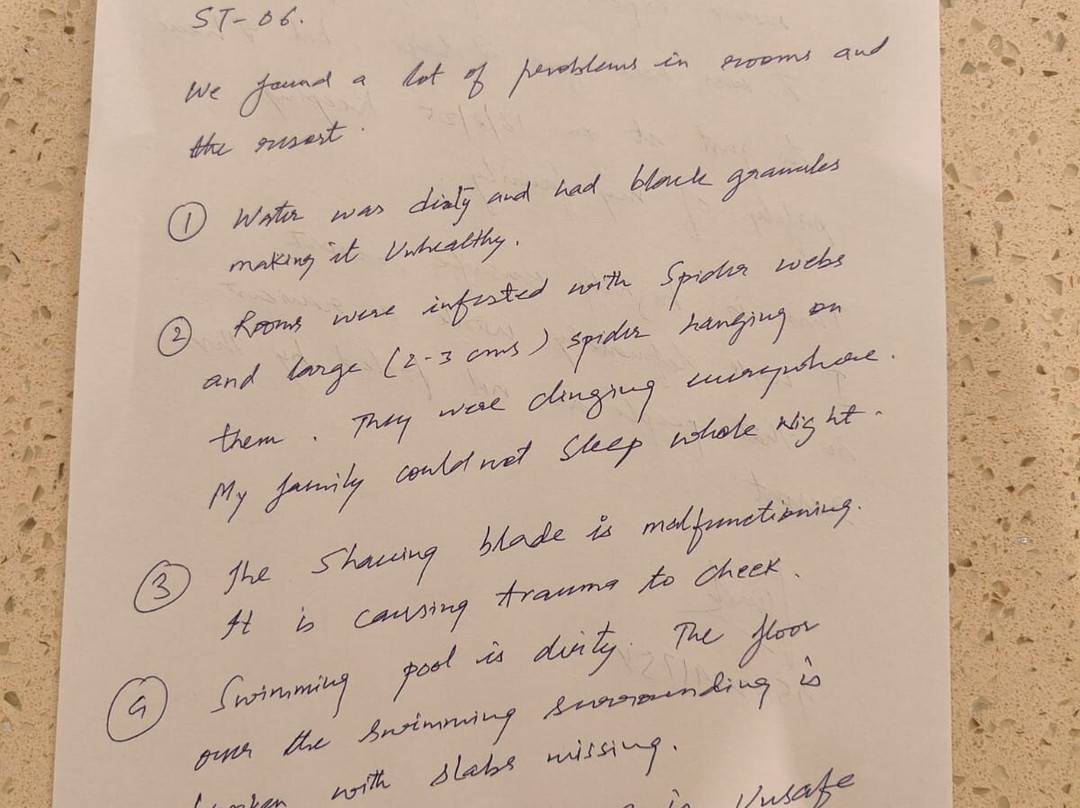 ST-06.
We found a lot of problems in rooms and
the resort.
① Water was dirty and had black granules
making it Unhealthy.
② Rooms were infested with Spider webs
and large (2-3 cms) spider hanging on
them. They were clinging everywhere.
My family could not Sleep whole Night.
③ The Shaving blade is malfunctioning.
It is causing trauma to cheek.
④ Swimming pool is dirty. The floor
over the swimming surrounding is
broken with slabs missing.
is Unsafe